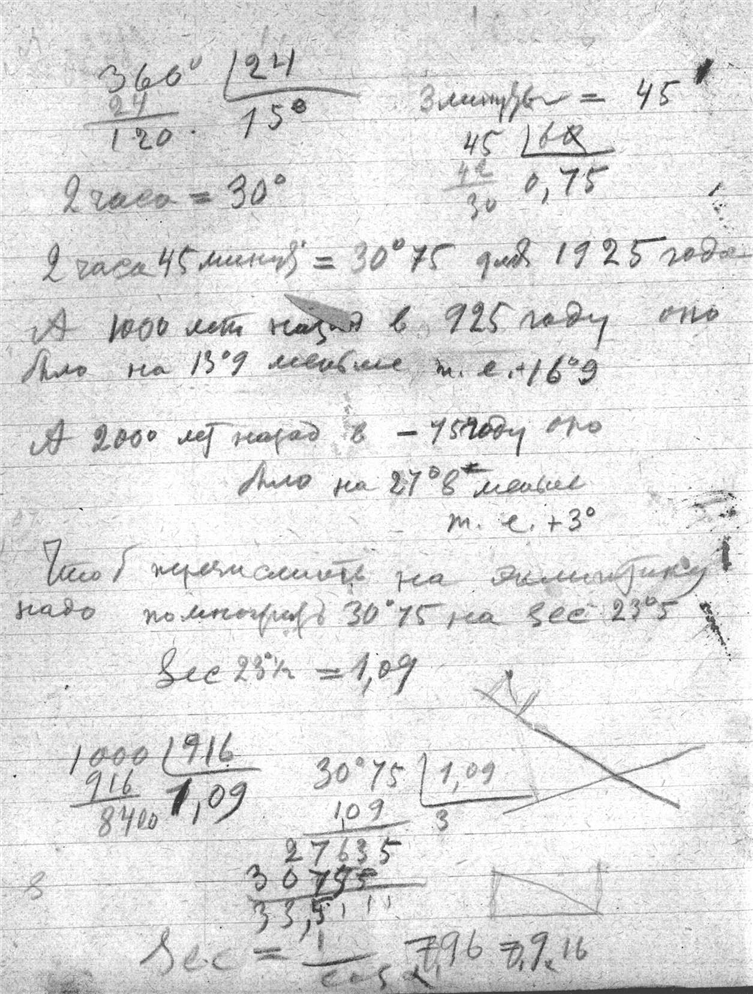 360° 24
24 15°
120
3 минуты = 45
45 60
42 0,75
30
2 часа = 30°
2 часа 45 минут = 30°75 для 1925 года
А 1000 лет назад в 925 году оно
было на 13°9 меньше т. е. +16°9
А 2000 лет назад в – 75 году оно
было на 27°8 меньше
т. е. +3°
Чтоб перечислить на эклиптику
надо помножить 30°75 на Sec 23°5
Sec 23°½ = 1,09
1000 916
916 1,09
8400
30°75 1,09
109 3
27635
3075
33,5
Sec = 1
cos α